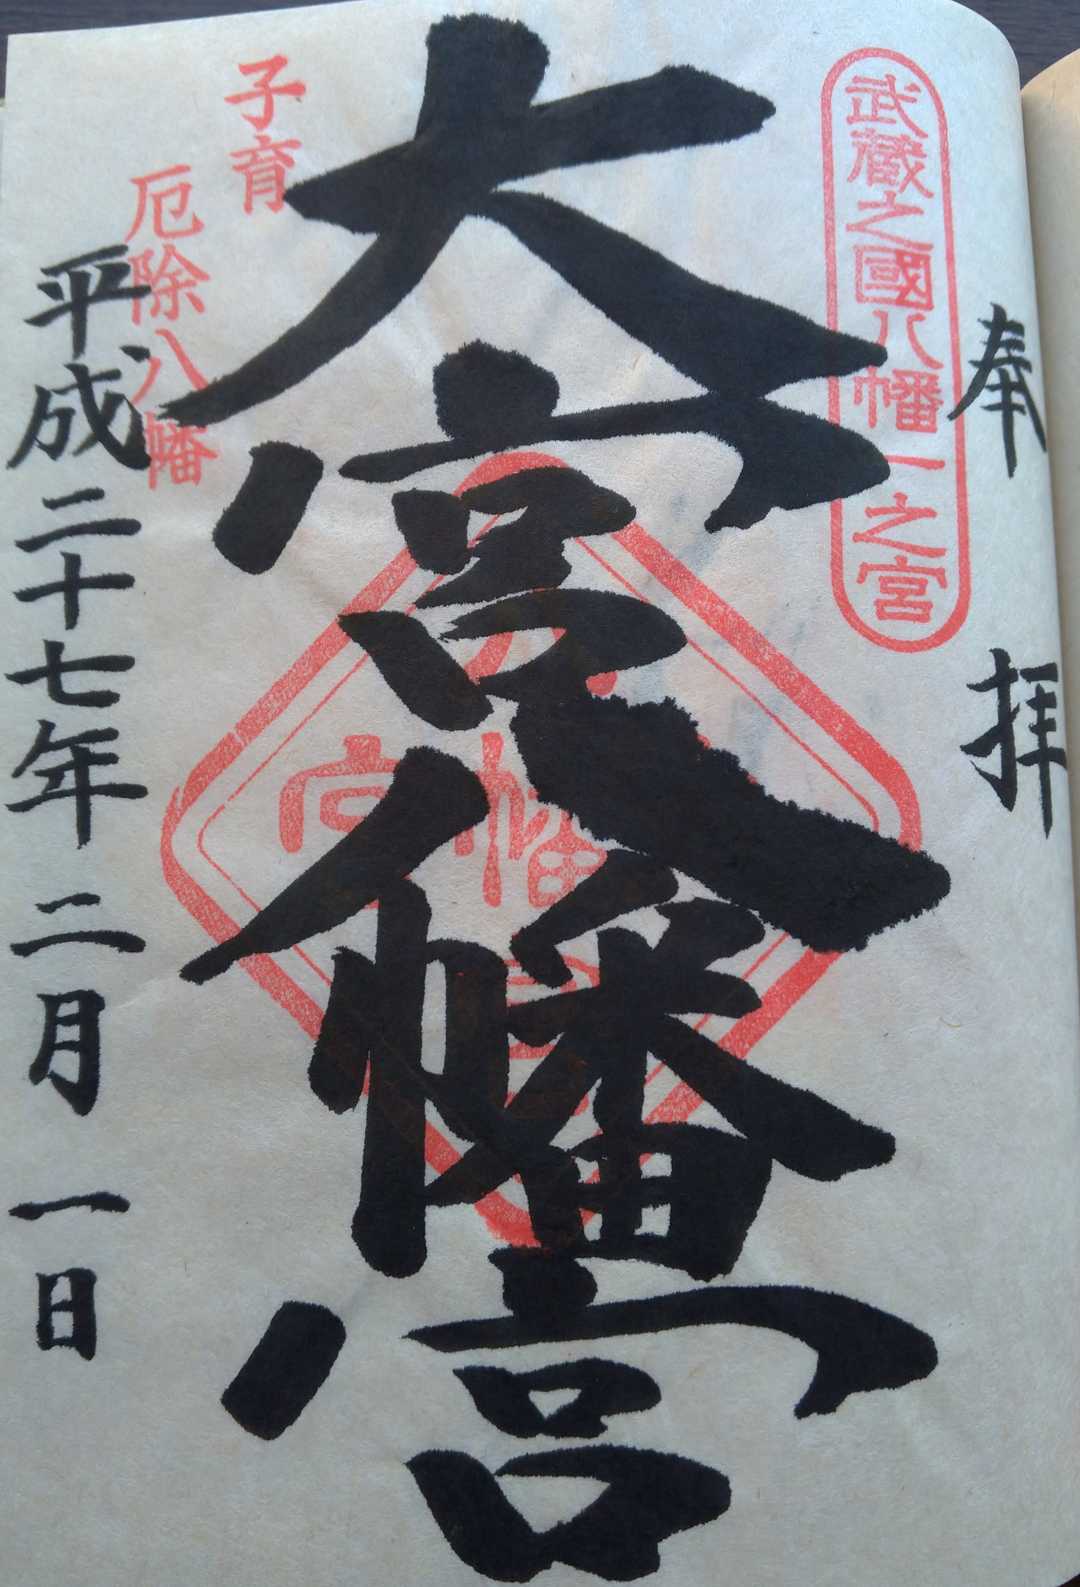 奉拝
武蔵之國八幡一之宮
大宮八幡宮
子育
厄除八幡
平成二十七年二月一日